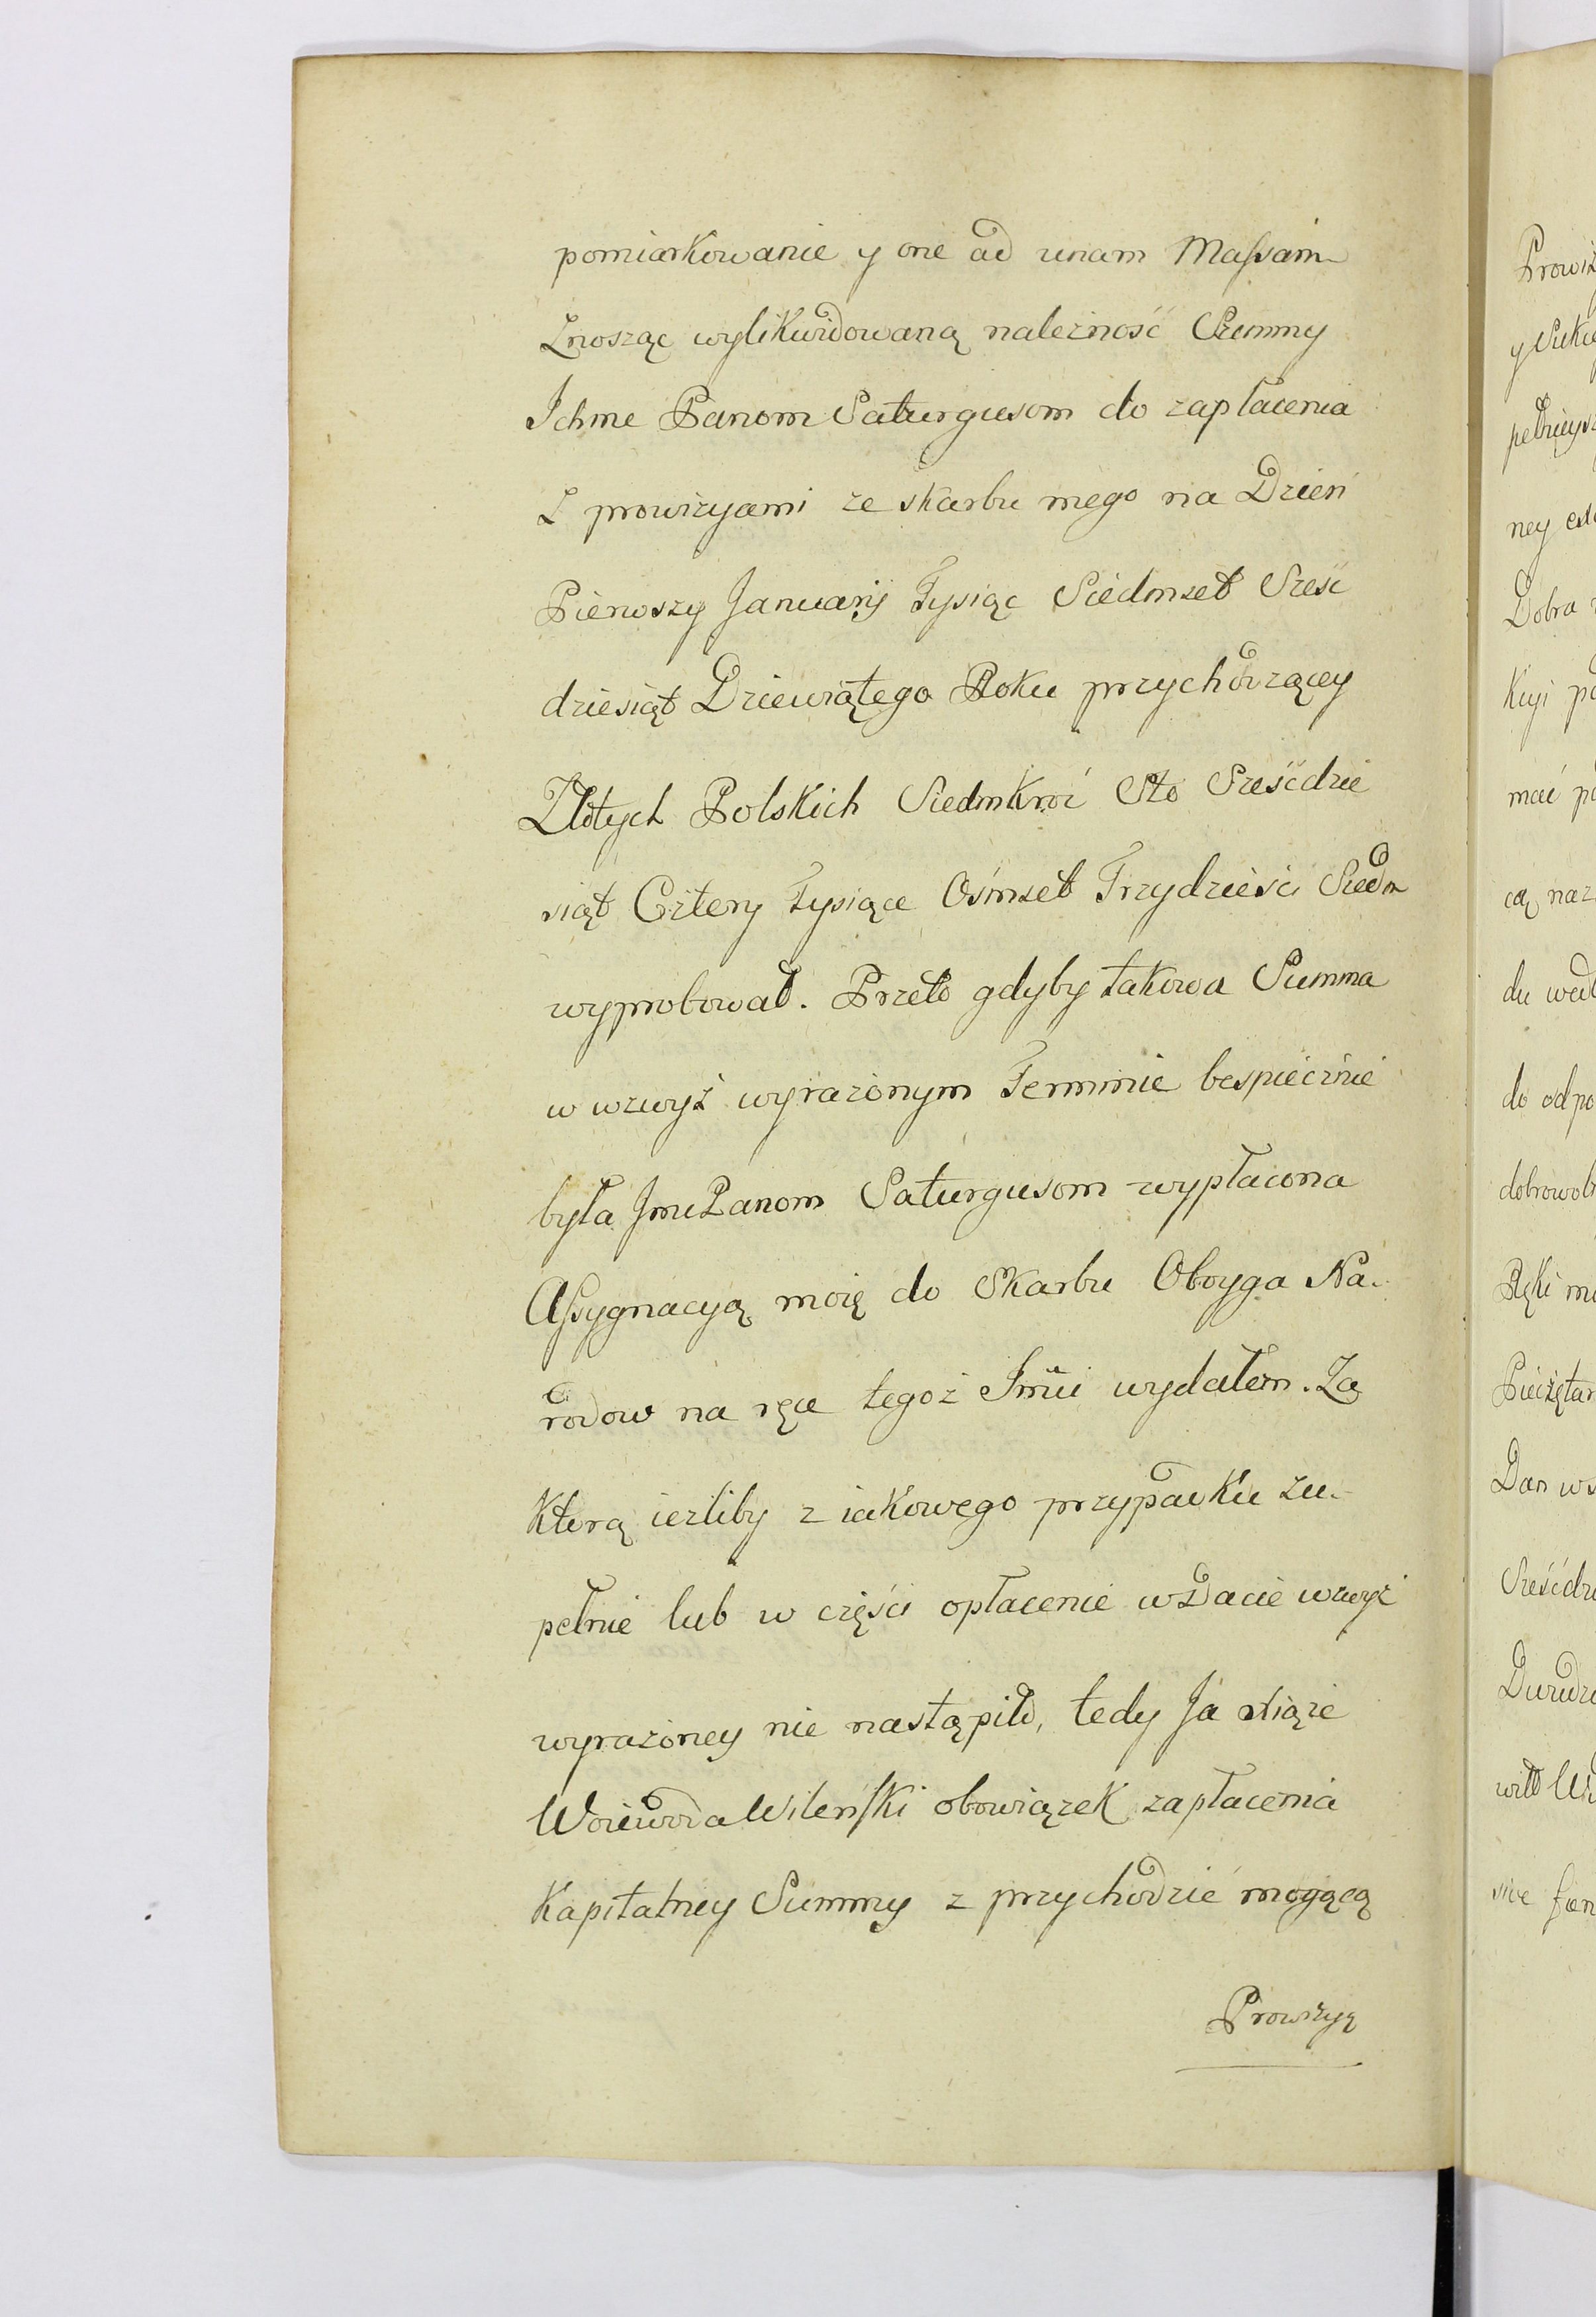 pomiarkowanie y one ad unam Massam
Znosząc wylikwidowaną należność Summy
Ichme Panom Saturgusom do zapłacenia
Z prowizyami ze skarbu mego na Dzień
Pierwszy Januarij Tysiąc Siedmset Sześć
dziesiąt Dziewiątego Roku przychodzącey
Złotych Polskich Siedmkroć Sto Sześćdzie
siąt Cztery Tysiące Ośmset Trzydzieści Siedm
wyprobował. Przeto gdyby takowa Summa
w wzwyż wyrażonym Terminie bespiecznie
była Jmć Panom Saturgusom wypłacona
Assygnacyą moię do Skarbu Oboyga Na-
rodow na ręce tegoż Jmći wydałem. Za
Ktorą ieżliby z iakowego przypadku zu-
pełnie lub w części opłacenie w Dacie wzwyż
wyrażoney nie nastąpiło, tedy Ja Xiąże
Woiewoda Wileński obowiązek zapłacenia
Kapitalney Summy z przychodzić mogącą
Prowizyą
Prowiz
y
ney
Dobra
Kuji
mać
cą naz
du wedł
do odpo
dobrowol
Ręki
Pieczętar
Dan w
Sześćdzi
sive